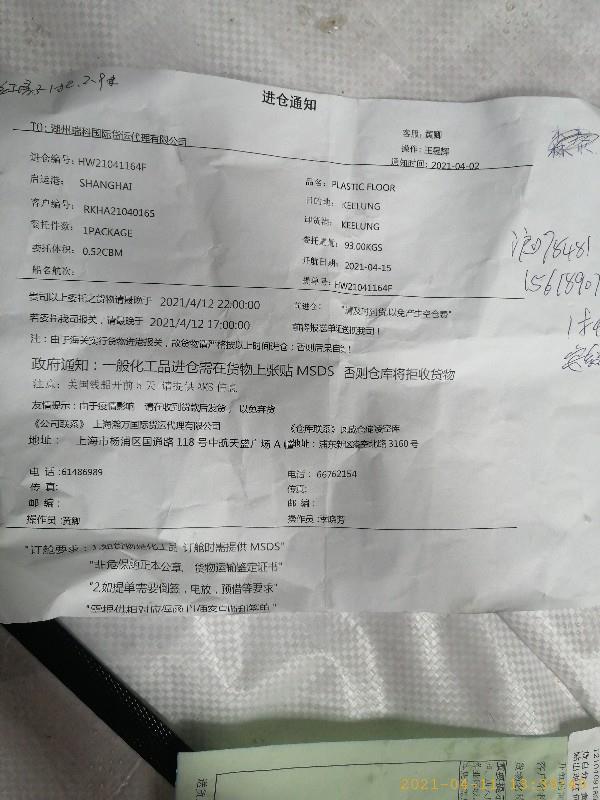 进仓通知
TO: 湖州瑞科国际货运代理有限公司
客服: 黄卿
操作: 王晟辉
通知时间: 2021-04-02
进仓编号: HW21041164F
启运港: SHANGHAI
客户编号: RKHA21040165
委托件数: 1PACKAGE
委托体积: 0.52CBM
船名航次:
品名: PLASTIC FLOOR
目的地: KEELUNG
卸货港: KEELUNG
委托重量: 93.00KGS
开航日期: 2021-04-15
提单号: HW21041164F
贵司以上委托之货物请最晚于 2021/4/12 22:00:00
前进仓: "请及时到货,以免产生空仓费"
若委托我司报关, 请最晚于 2021/4/12 17:00:00
前将报关单证送到我司!
注: 由于海关实行货物进港报关, 故货物请严格按以上时间进仓; 否则后果自负!
政府通知: 一般化工品进仓需在货物上张贴 MSDS 否则仓库将拒收货物
注意: 美国线船开前5天 请提供 AMS 信息
友情提示: 由于疫情影响 请在收到货款后发货, 以免弃货
《公司联系》上海瀚万国际货运代理有限公司
地址: 上海市杨浦区国道路 118 号中航天盛广场 A
《仓库联系》
地址: 浦东新区 北路 3160 号
电 话 :61486989
传 真:
邮 编 :
操作员 :黄卿
电话: 66762154
传真:
邮 编 :
操作员 :李晓芳
"订舱要求: 1.如货物是化工品 订舱时需提供 MSDS"
"非危保函正本公章, 货物运输鉴定证书"
"2.如提单需要倒签, 电放, 预借等要求"
78481
1561890
2021-04-11